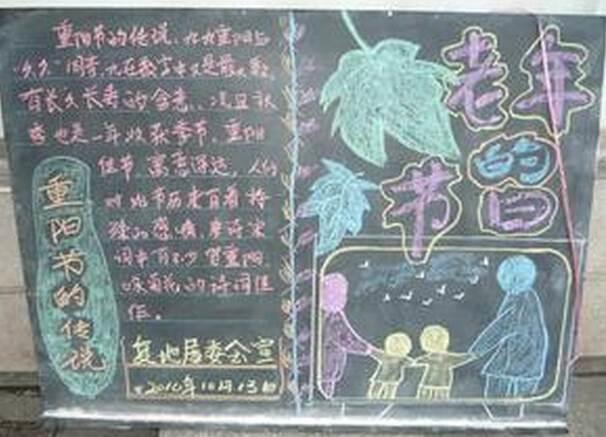 重阳节的传说，九九重阳与
“久久”同音，九在数字中又是最大数，
有长久长寿的含意，况且秋
季也是一年收获季节，重阳
佳节，寓意深远，人们
对此节历来有着特
殊的感情，唐诗宋
词中有不少贺重阳，
咏菊花的诗词佳
作。
重阳节的传说
复地居委会宣
2010年10月13日
老年
的
节日